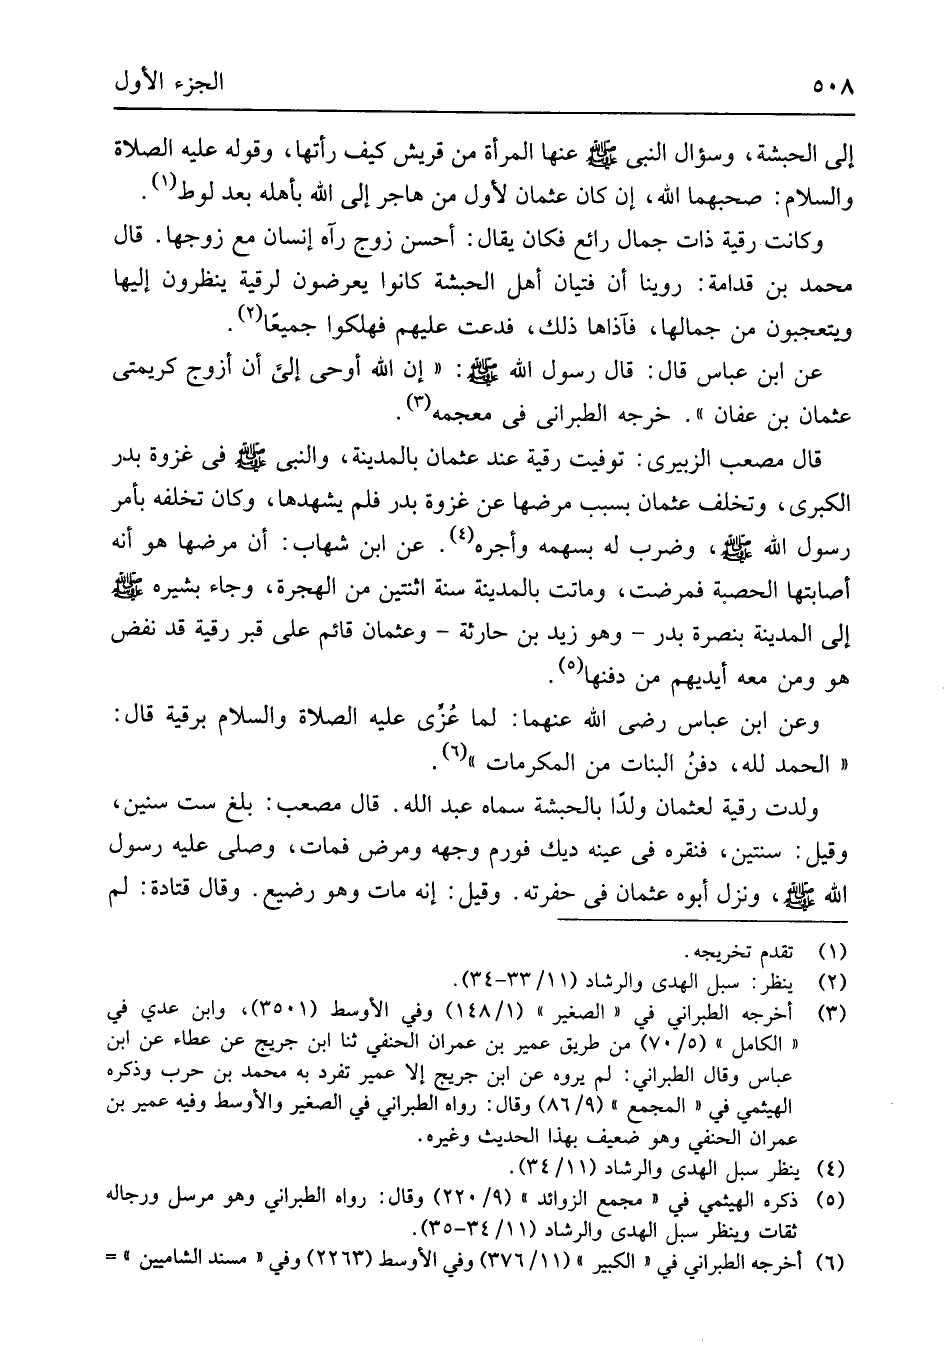 ٥٠٨ الجزء الأول
إلى الحبشة، وسؤال النبى ﷺ عنها المرأة من قريش كيف رأتها، وقوله عليه الصلاة
والسلام: صحبهما الله، إن كان عثمان لأول من هاجر إلى الله بأهله بعد لوط(١).
وكانت رقية ذات جمال رائع فكان يقال: أحسن زوج رآه إنسان مع زوجها. قال
محمد بن قدامة: روينا أن فتيان أهل الحبشة كانوا يعرضون لرقية ينظرون إليها
ويتعجبون من جمالها، فآذاها ذلك، فدعت عليهم فهلكوا جميعًا(٢).
عن ابن عباس قال: قال رسول الله ﷺ: « إن الله أوحى إلىَّ أن أزوج كريمتى
عثمان بن عفان ». خرجه الطبرانى فى معجمه(٣).
قال مصعب الزبيرى: توفيت رقية عند عثمان بالمدينة، والنبى ﷺ فى غزوة بدر
الكبرى، وتخلف عثمان بسبب مرضها عن غزوة بدر فلم يشهدها، وكان تخلفه بأمر
رسول الله ﷺ، وضرب له بسهمه وأجره(٤). عن ابن شهاب: أن مرضها هو أنه
أصابتها الحصبة فمرضت، وماتت بالمدينة سنة اثنتين من الهجرة، وجاء بشيره ﷺ
إلى المدينة بنصرة بدر – وهو زيد بن حارثة – وعثمان قائم على قبر رقية قد نفض
هو ومن معه أيديهم من دفنها(٥).
وعن ابن عباس رضى الله عنهما: لما عُزِّى عليه الصلاة والسلام برقية قال:
« الحمد لله، دفنُ البنات من المكرمات »(٦).
ولدت رقية لعثمان ولدًا بالحبشة سماه عبد الله. قال مصعب: بلغ ست سنين،
وقيل: سنتين، فنقره فى عينه ديك فورم وجهه ومرض فمات، وصلى عليه رسول
الله ﷺ، ونزل أبوه عثمان فى حفرته. وقيل: إنه مات وهو رضيع. وقال قتادة: لم
(١) تقدم تخريجه.
(٢) ينظر: سبل الهدى والرشاد (١١/ ٣٣–٣٤).
(٣) أخرجه الطبراني في « الصغير » (١/ ١٤٨) وفي الأوسط (٣٥٠١)، وابن عدي في
« الكامل » (٥/ ٧٠) من طريق عمير بن عمران الحنفي ثنا ابن جريج عن عطاء عن ابن
عباس وقال الطبراني: لم يروه عن ابن جريج إلا عمير تفرد به محمد بن حرب وذكره
الهيثمي في « المجمع » (٩/ ٨٦) وقال: رواه الطبراني في الصغير والأوسط وفيه عمير بن
عمران الحنفي وهو ضعيف بهذا الحديث وغيره.
(٤) ينظر سبل الهدى والرشاد (١١/ ٣٤).
(٥) ذكره الهيثمي في « مجمع الزوائد » (٩/ ٢٢٠) وقال: رواه الطبراني وهو مرسل ورجاله
ثقات وينظر سبل الهدى والرشاد (١١/ ٣٤–٣٥).
(٦) أخرجه الطبراني في « الكبير » (١١/ ٣٧٦) وفي الأوسط (٢٢٦٣) وفي « مسند الشاميين » =